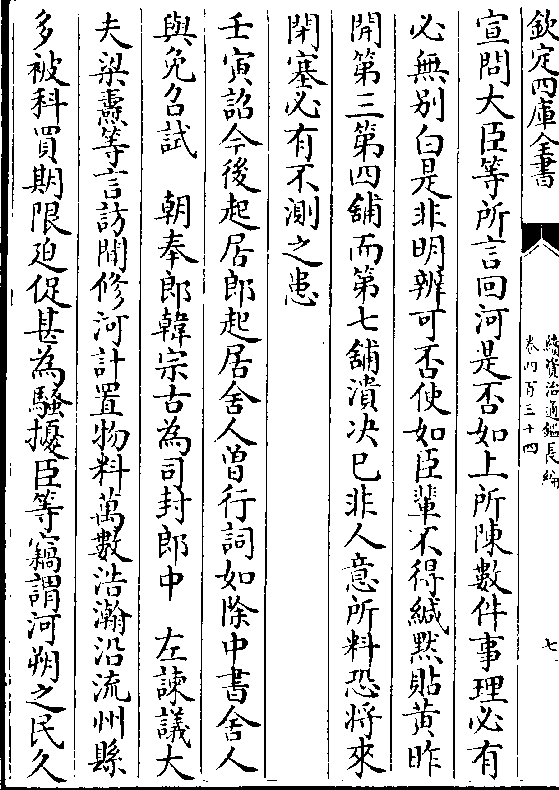 欽定四庫全書
續資治通鑑長編
卷四百三十四
七
宣問大臣等所言回河是否如上所陳數件事理必有
必無别白是非明辨可否使如臣輩不得緘黙貼黄昨
開第三第四舖而第七舖潰决已非人意所料恐將來
閉塞必有不測之患
壬寅詔今後起居郎起居舍人曾行詞如除中書舍人
與免召試　朝奉郎韓宗古為司封郎中　左諫議大
夫梁燾等言訪聞修河計置物料萬數浩瀚沿流州縣
多被科買期限廹促甚為騷擾臣等竊謂河朔之民久